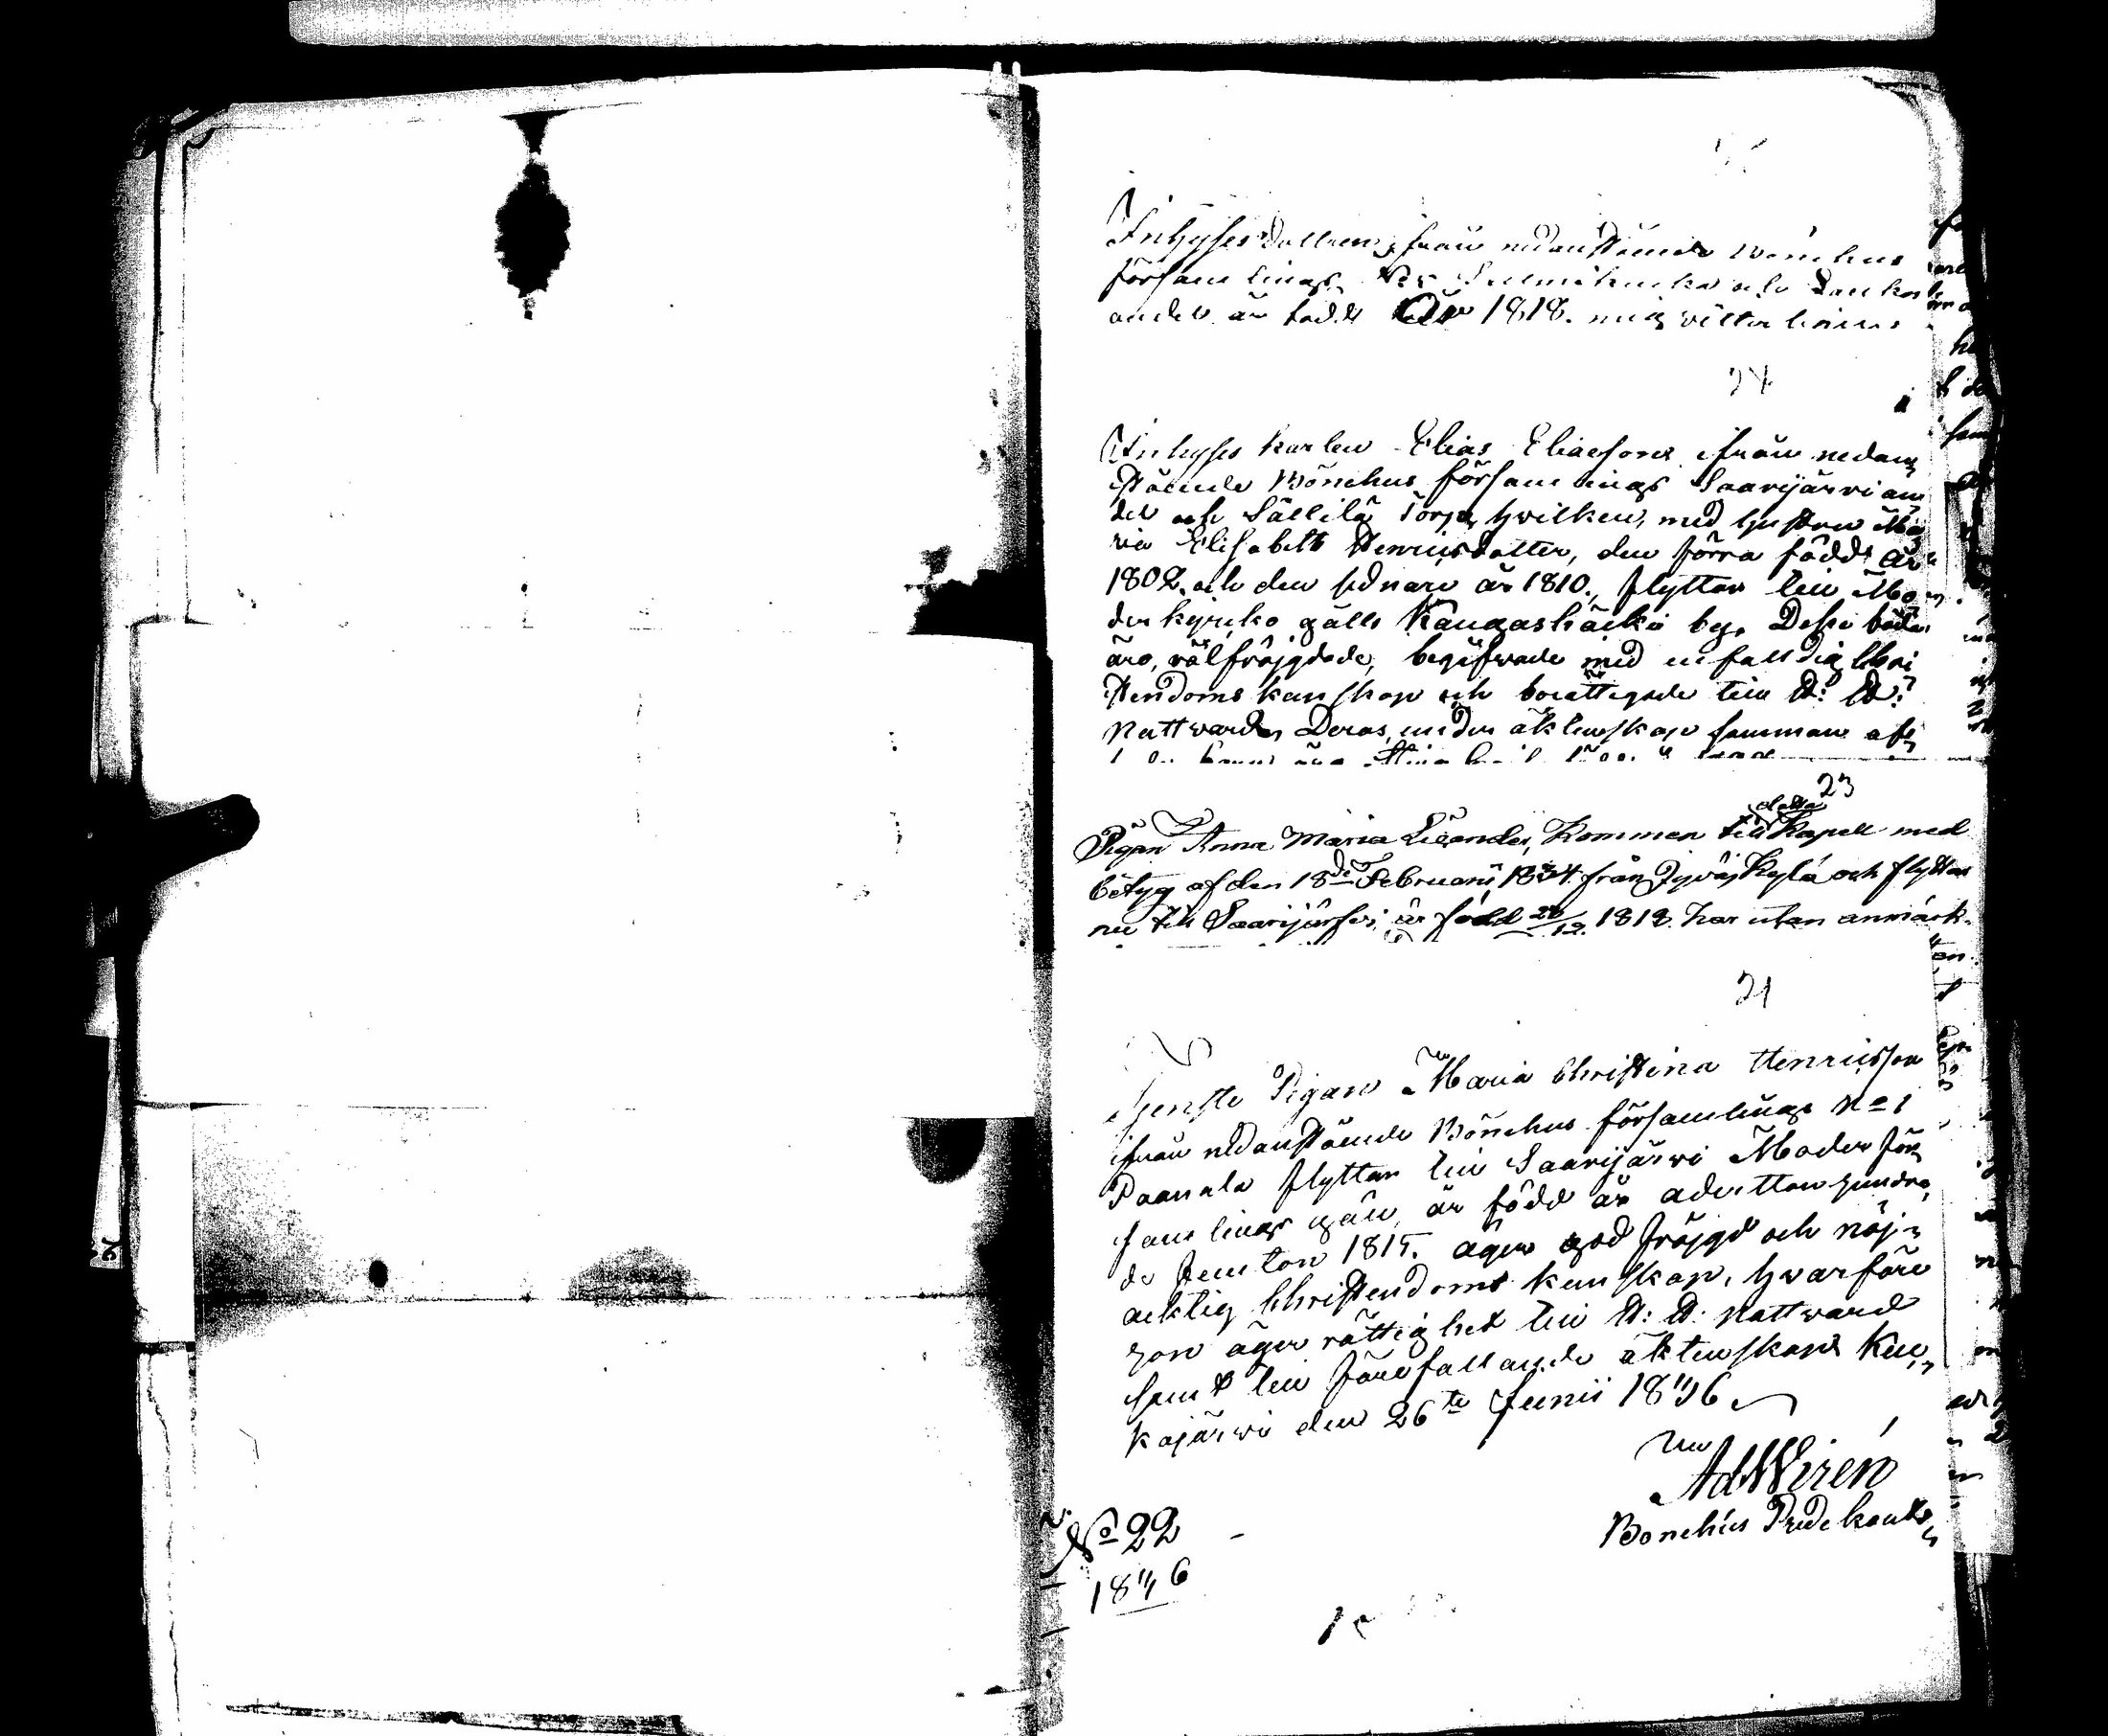 Inhyses dottern ifrån nedanstående Bönehus
församlings
andel är född År 1818. mig vitterligen
24
Inhyses karlen Elias Eliaesson ifrån nedan„
stående Bönehus församlings Saarijärvi an
del och Sällilä Torp, hvilken, med hustru Ma„
ria Elisabeth Henricsdotter, den förra född år
1802. och den sednare år 1810., flyttar till Mo„
derkyrko gälls Kangashäki by. Desse både
äro, välfräjgdade, begåfvade med enfalldig Chri
stendoms kunskap och berättigade till H: H:
Nattvard. Deras under äktenskap samman af„
23
Pigan Anna Maria Licander, Kommen till detta Kapell med
betyg af den 18de Februarii 1834. från Jyväskylä och flyttar
nu till Saarijärfvi, är född 28/12. 1818. har utan anmärk-
21
Tjenste Pigan Maria Christina Henricsson
ifrån nedanstående Bönehus församlings No 1
Paanala flyttar till Saarijärwi Moder för„
samlings gäll, är född år adertton hundra„
de femton 1815. äger god fräjgd och nöj„
acktig Christendoms kunskap, hvarföre
hon äger rättighet till H: H: Nattvard
samt till förefallande äktenskap. Kiu„
kajärwi den 26te Junii 1846
Ad Wirén
Bönehus Predikant„
No 22
1846